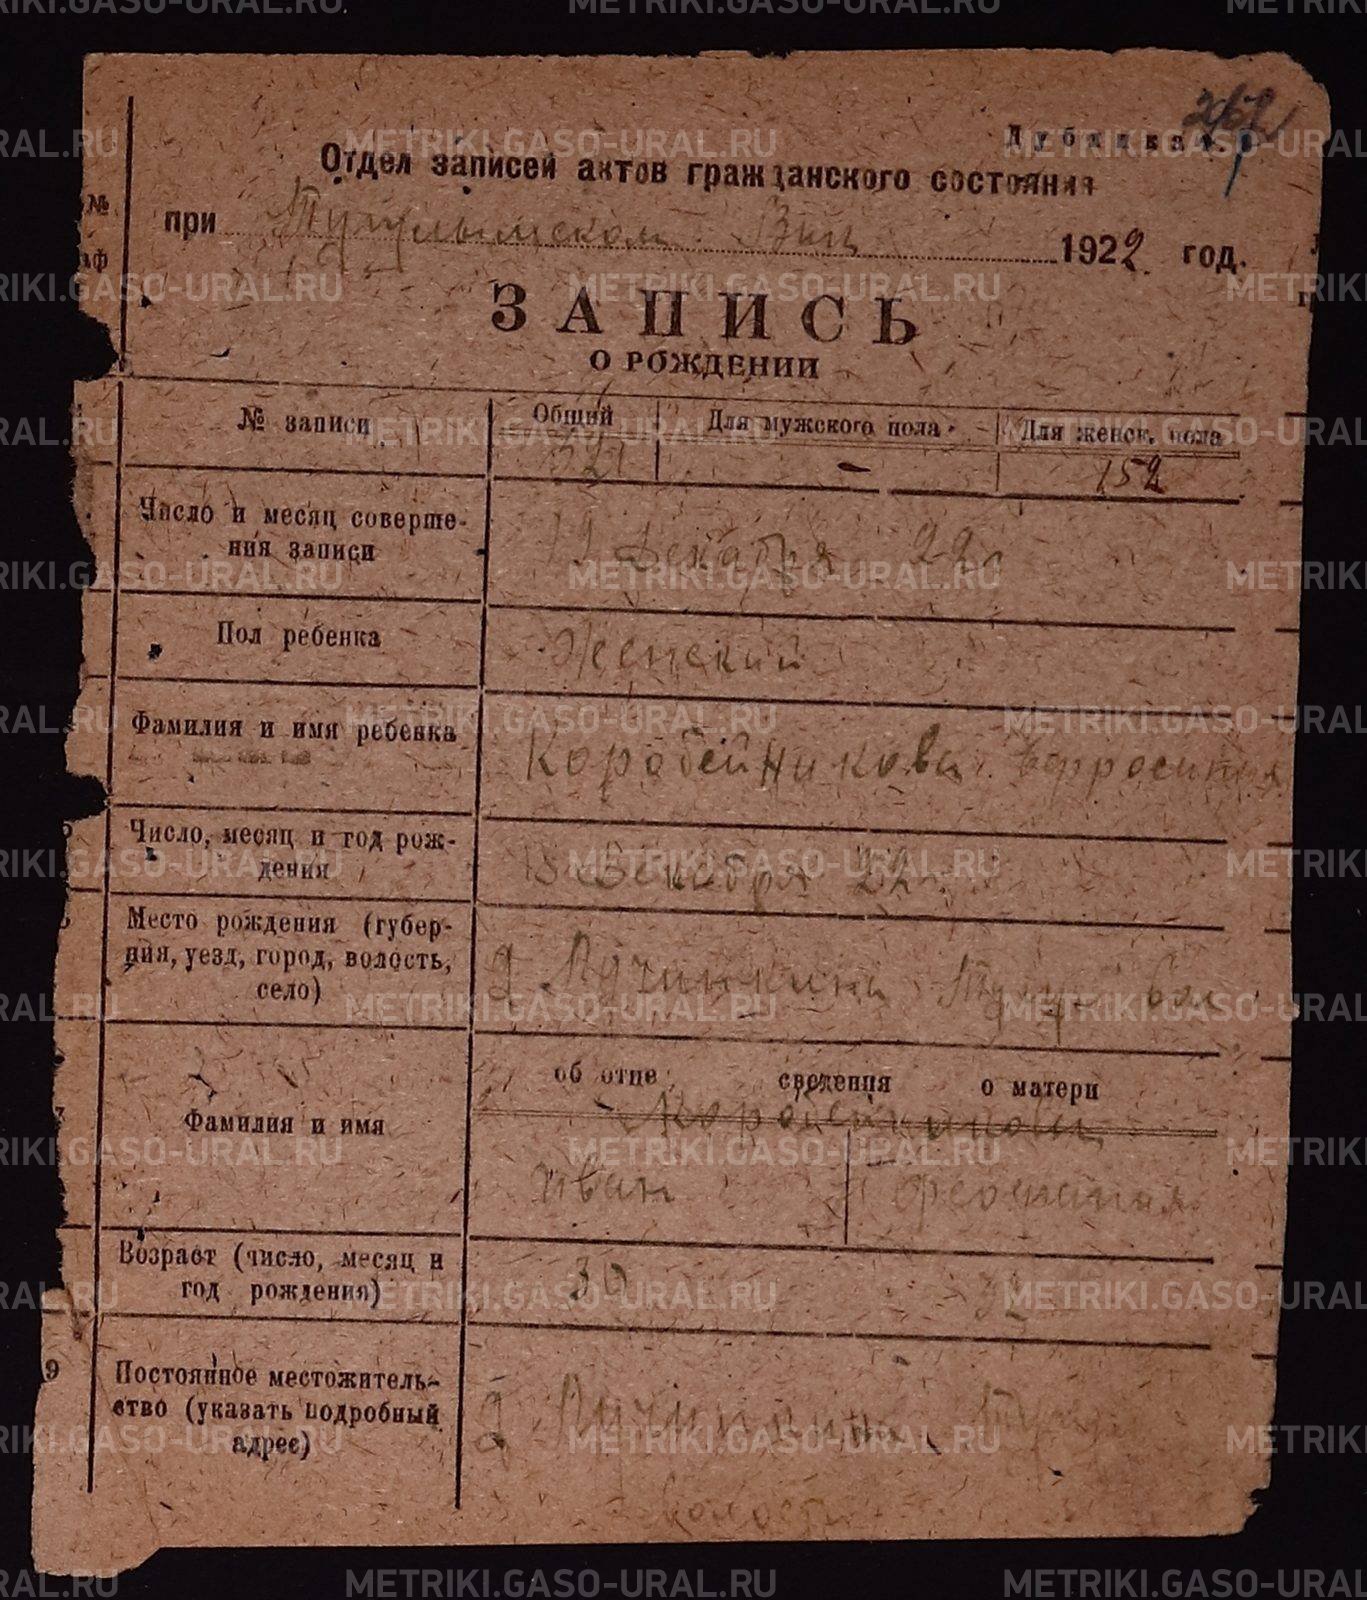 Дубликат
Отдел записей актов гражданского состояния
№
при Тугулымском Вик 1922 год.
аф
ЗАПИСЬ
О РОЖДЕНИИ
№ записи Общий Для мужского пола Для женск. пола
321 - 152
Число и месяц соверше-
ния записи
19 Декабря 22 г
Пол ребенка Женский
Фамилия и имя ребенка Коробейникова Ефросиния
Число, месяц и год рож-
дения
Декабря 22 г.
Место рождения (губер-
ния, уезд, город, волость,
село)
д Лучинкина Тугул вол
об отце сведения о матери
Фамилия и имя
Иван
Возраст (число, месяц и
год рождения)
30 32
9 Постоянное местожитель-
ство (указать подробный
адрес)
д. Лучинкина Тугул
волости
METRIKI.GASO-URAL.RU